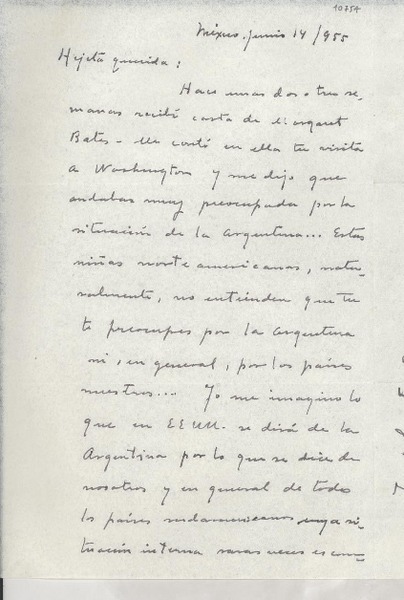 10754
México. junio 14/955
Hijeta querida:
Hace unas dos o tres se,
manas recibí carta de Margaret
Bates – Me contó en ella tu visita
a Washington y me dijo que
andabas muy preocupada por la
situación de la Argentina... Estas
niñas norteamericanas, natu-
ralmente, no entienden que tu
te preocupes por la Argentina
ni, en general, por los países
nuestros... Yo me imagino lo
que en EE.UU. se dirá de la
Argentina por lo que se dice de
nosotros y en general de todos
los países sudamericanos cuya si-
tuación interna raras veces es com-